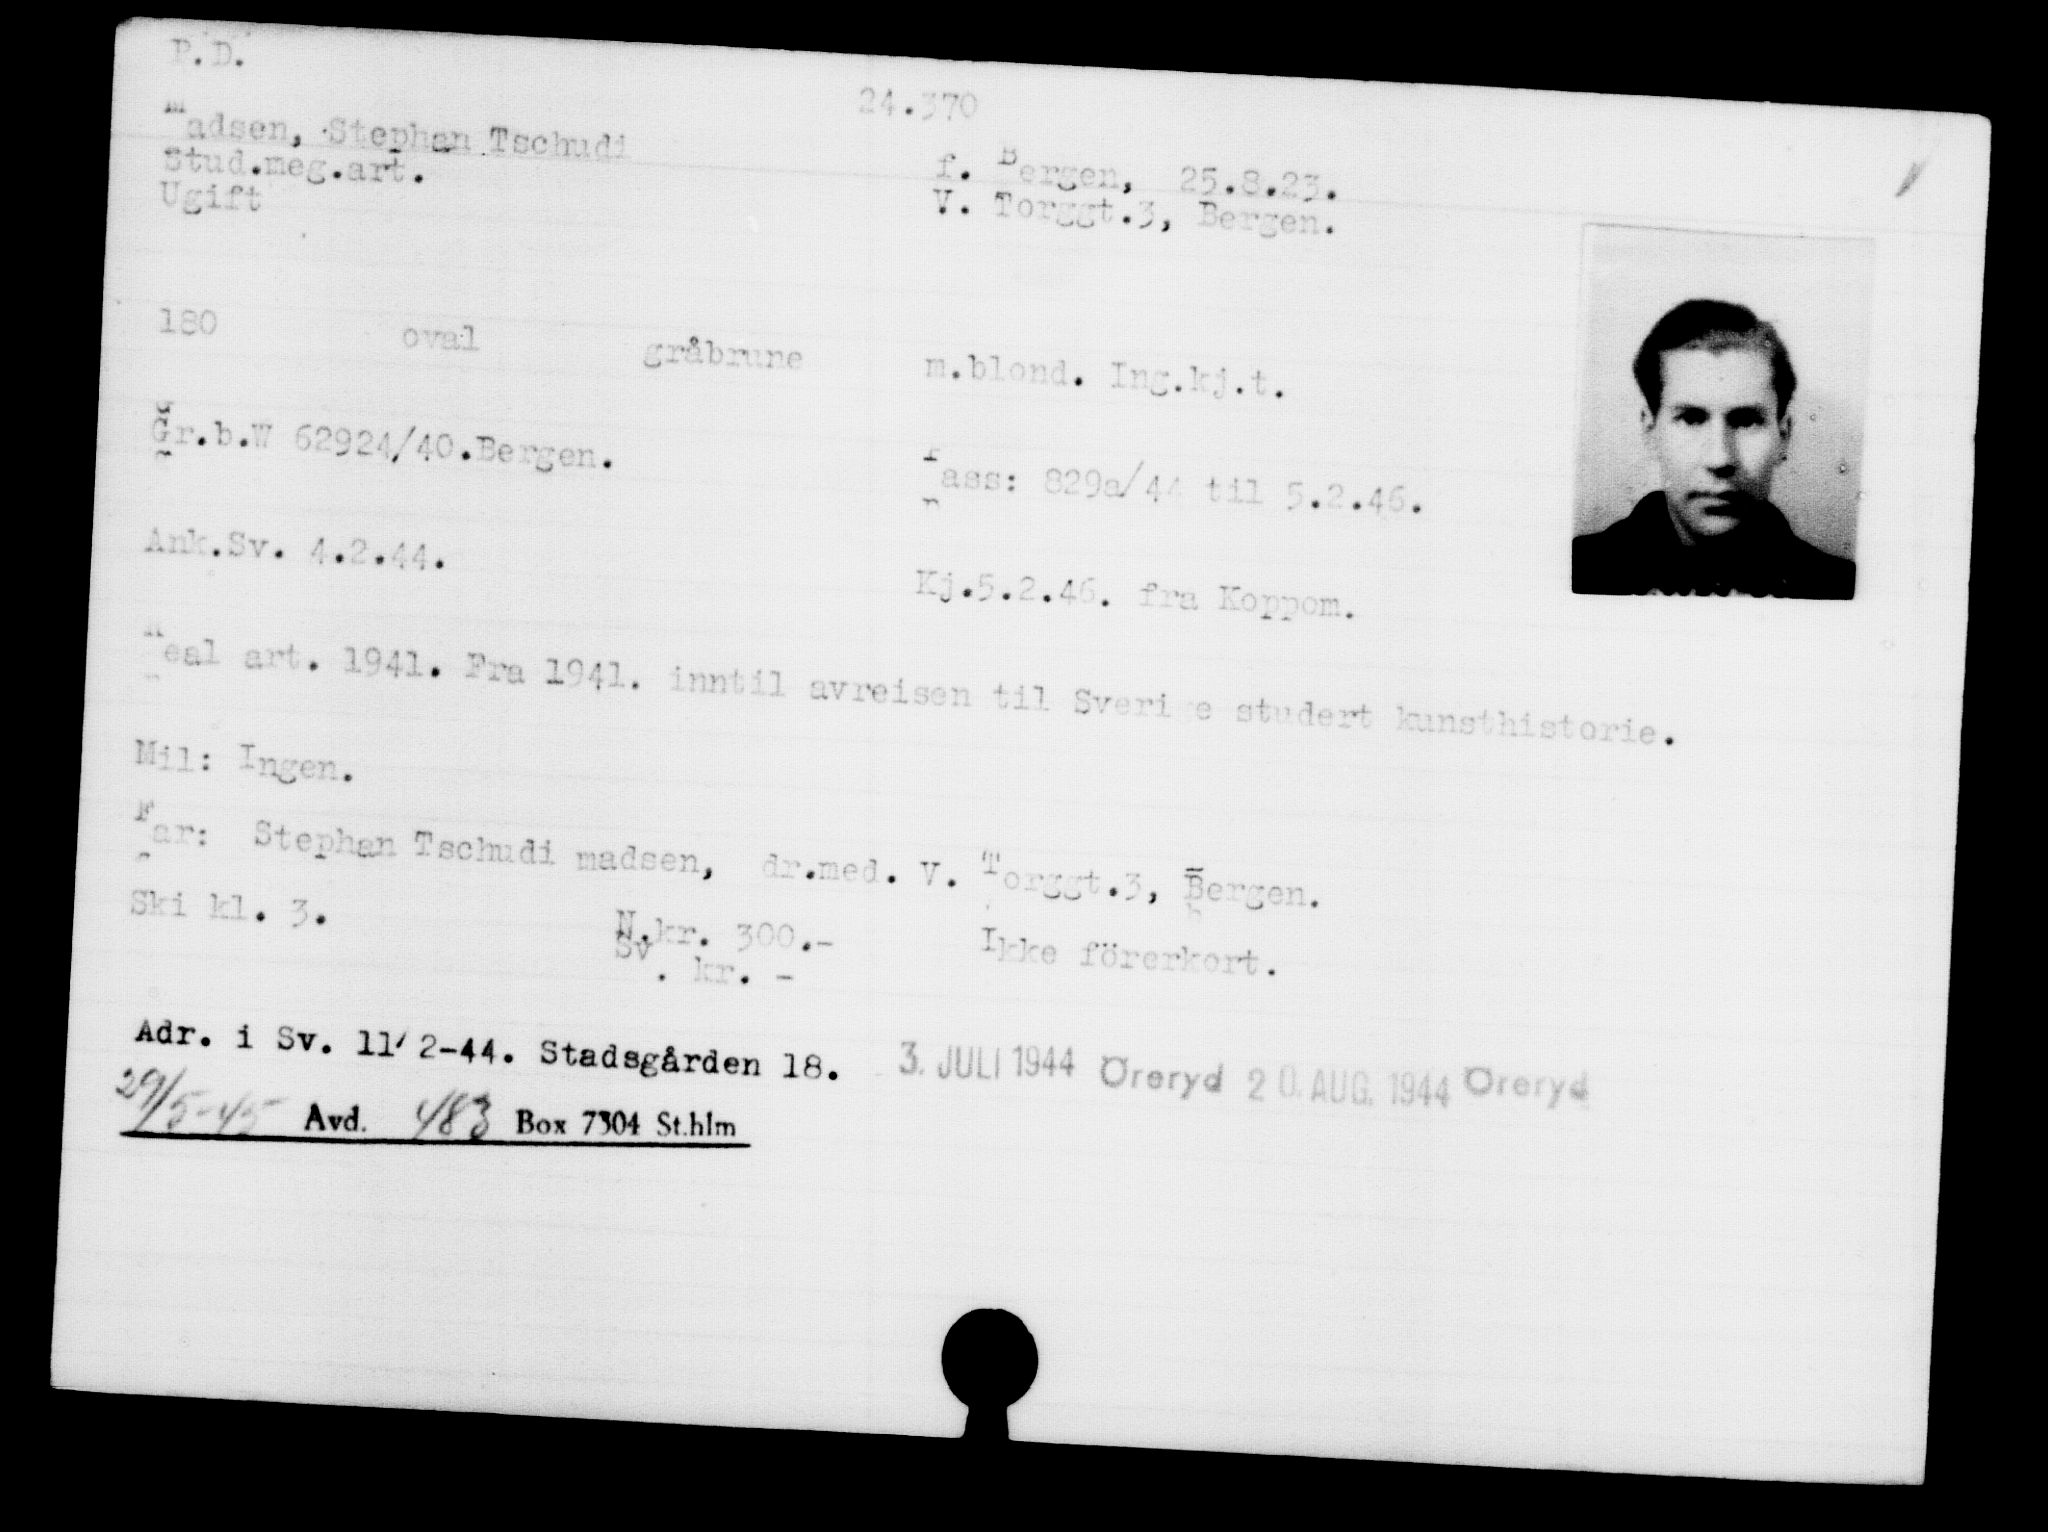 P.D.
24.370
Madsen, Stephan Tschudi
Stud.meg.art.
Ugift
f. Bergen, 25.8.23.
V. Torggt.3, Bergen.
180 oval gråbrune m.blond. Ing.kj.t.
Gr.b.W 62924/40.Bergen.
Pass: 829a/44 til 5.2.46.
Ank.Sv. 4.2.44.
Kj.5.2.46. fra Koppom.
Real art. 1941. Fra 1941. inntil avreisen til Sveri e studert kunsthistorie.
Mil: Ingen.
Far: Stephan Tschudi madsen, dr.med. V. Torggt.3, Bergen.
Ski kl. 3.
N.kr. 300.-
Sv. kr. -
Ikke förerkort.
Adr. i Sv. 11/2-44. Stadsgården 18. 3. JULI 1944 Öreryd 20. AUG. 1944 Öreryd
29/5-45 Avd. 483 Box 7304 St.hlm